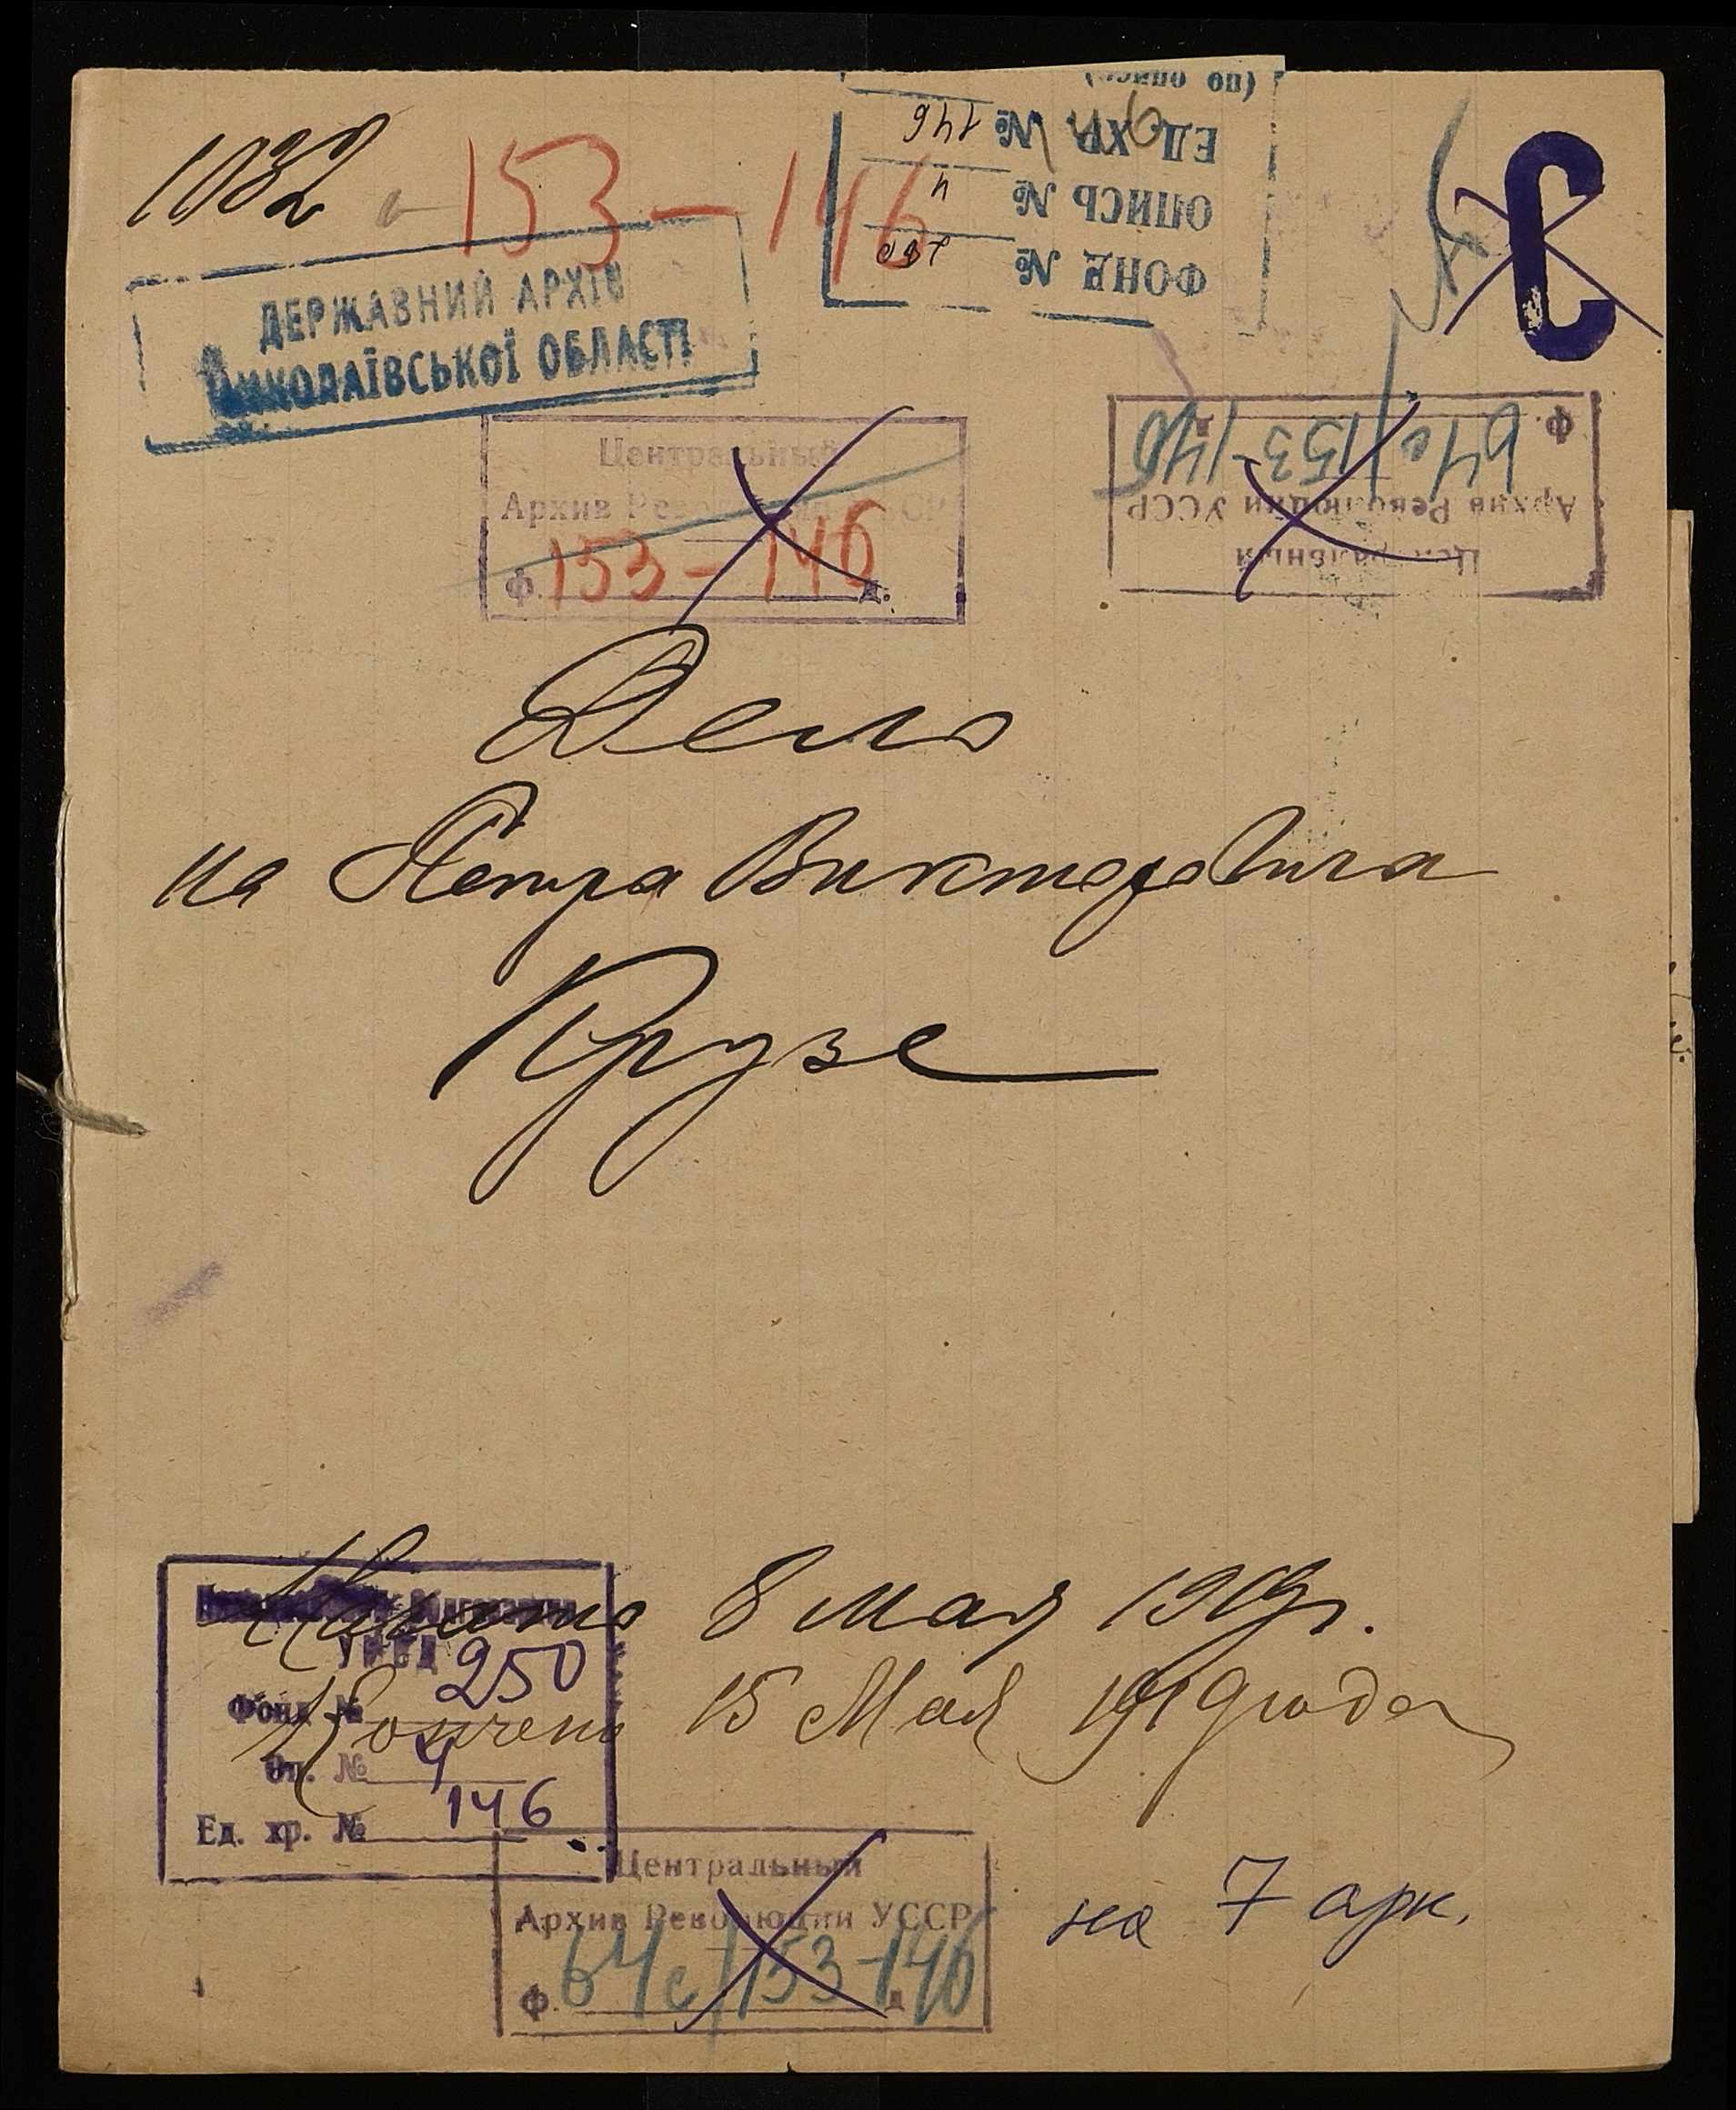 1032
153-146
(по описи)
ЕД. ХР. № 146
ОПИСЬ № 4
ФОНД № 250
С
ДЕРЖАВНИЙ АРХІВ
МИКОЛАЇВСЬКОЇ ОБЛАСТІ
Центральный
Архив Революции УССР
ф. 153-146 д.
Центральный
Архив Революции УССР
ф. 64с/153-146
Дело
на Петра Викторовича
Крузе
Начато 8 мая 1919 г.
Кончено 15 Мая 1919 года
250
Фонд №
Оп. № 4
Ед. хр. № 146
Центральный
Архив Революции УССР
ф. 64с/153-146 д
на 7 арк.